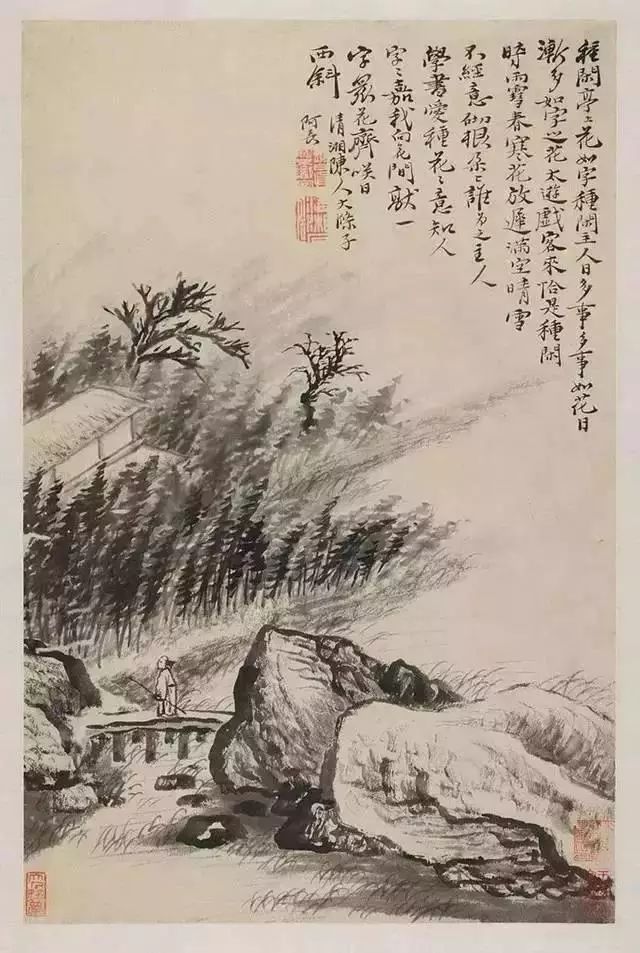 種閑亭上花如字種閑主人日多事多事如花日
漸多如字之花太遊戲客來恰是種閑
時雨雪春寒花放遲滿空晴雪
不經意砌根朵〻誰為之主人
學書愛種花〻意知人
字〻嘉我向花間獻一
字眾花齊咲日
西斜
清湘陳人大滌子
阿長